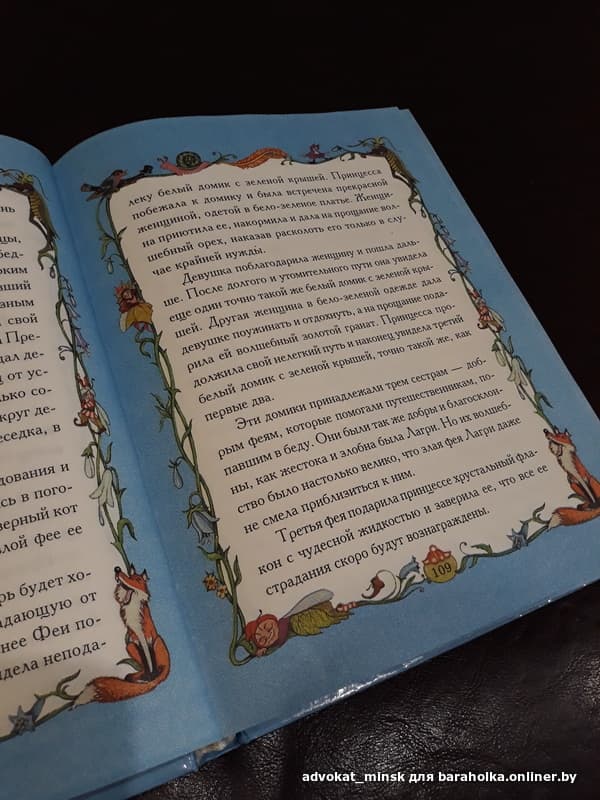 нь
цы,
бед-
оким
вший
азным
й свой
и Пре-
дал де-
ц от ус-
лько со-
округ де-
еседка, в
едования и
сь в пого-
верный кот
злой фее ее
рь будет хо-
адающую от
нее Феи по-
идела непода-
леку белый домик с зеленой крышей. Принцесса
побежала к домику и была встречена прекрасной
женщиной, одетой в бело-зеленое платье. Женщи-
на приютила ее, накормила и дала на прощание вол-
шебный орех, наказав расколоть его только в слу-
чае крайней нужды.
Девушка поблагодарила женщину и пошла даль-
ше. После долгого и утомительного пути она увидела
еще один точно такой же белый домик с зеленой кры-
шей. Другая женщина в бело-зеленой одежде дала
девушке поужинать и отдохнуть, а на прощание пода-
рила ей волшебный золотой гранат. Принцесса про-
должила свой нелегкий путь и наконец увидела третий
белый домик с зеленой крышей, точно такой же, как
первые два.
Эти домики принадлежали трем сестрам — доб-
рым феям, которые помогали путешественникам, по-
павшим в беду. Они были так же добры и благосклон-
ны, как жестока и злобна была Лагри. Но их волшеб-
ство было настолько велико, что злая фея Лагри даже
не смела приблизиться к ним.
Третья фея подарила принцессе хрустальный фла-
кон с чудесной жидкостью и заверила ее, что все ее
страдания скоро будут вознаграждены.
109
advokat_minsk для baraholka.onliner.by